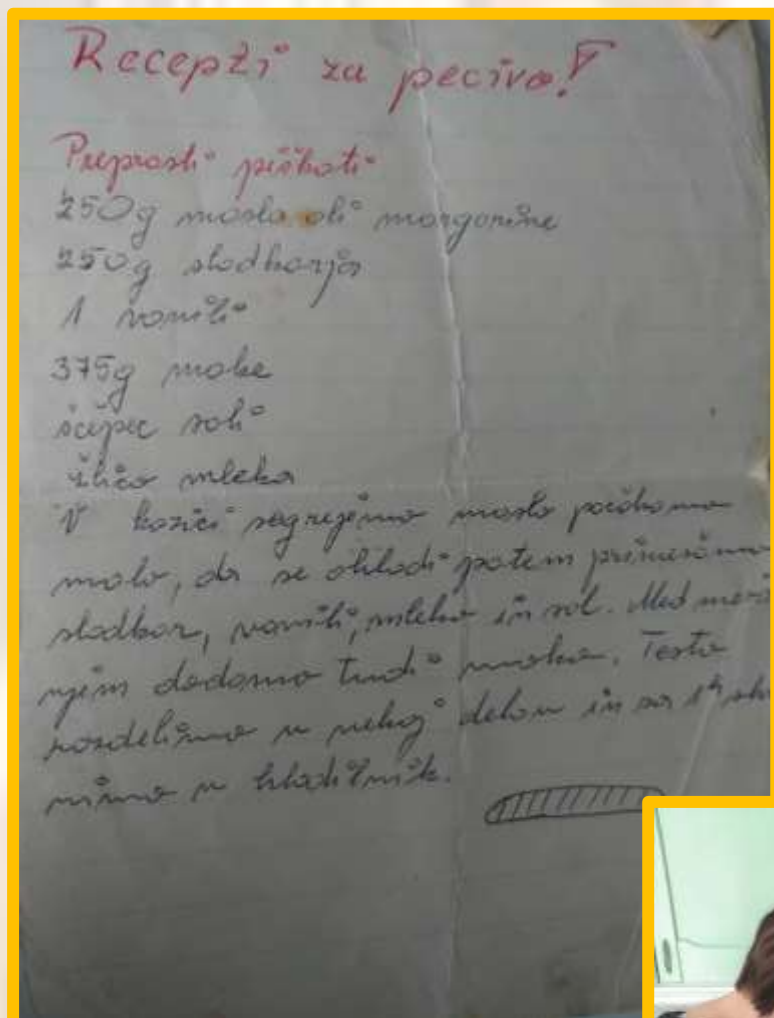 Recepti za pecivo!
Preprosti piškoti
250g masla ali margarine
250g sladkorja
1 vanili
375g moke
ščepec soli
žlico mleka
V kozici segrejemo maslo počakamo
malo, da se ohladi potem primešamo
sladkor, vanili, mleko in sol. Med meša
njem dodamo tudi moko. Testo
razdelimo v nekaj delov in za 1h
v hladilnik.